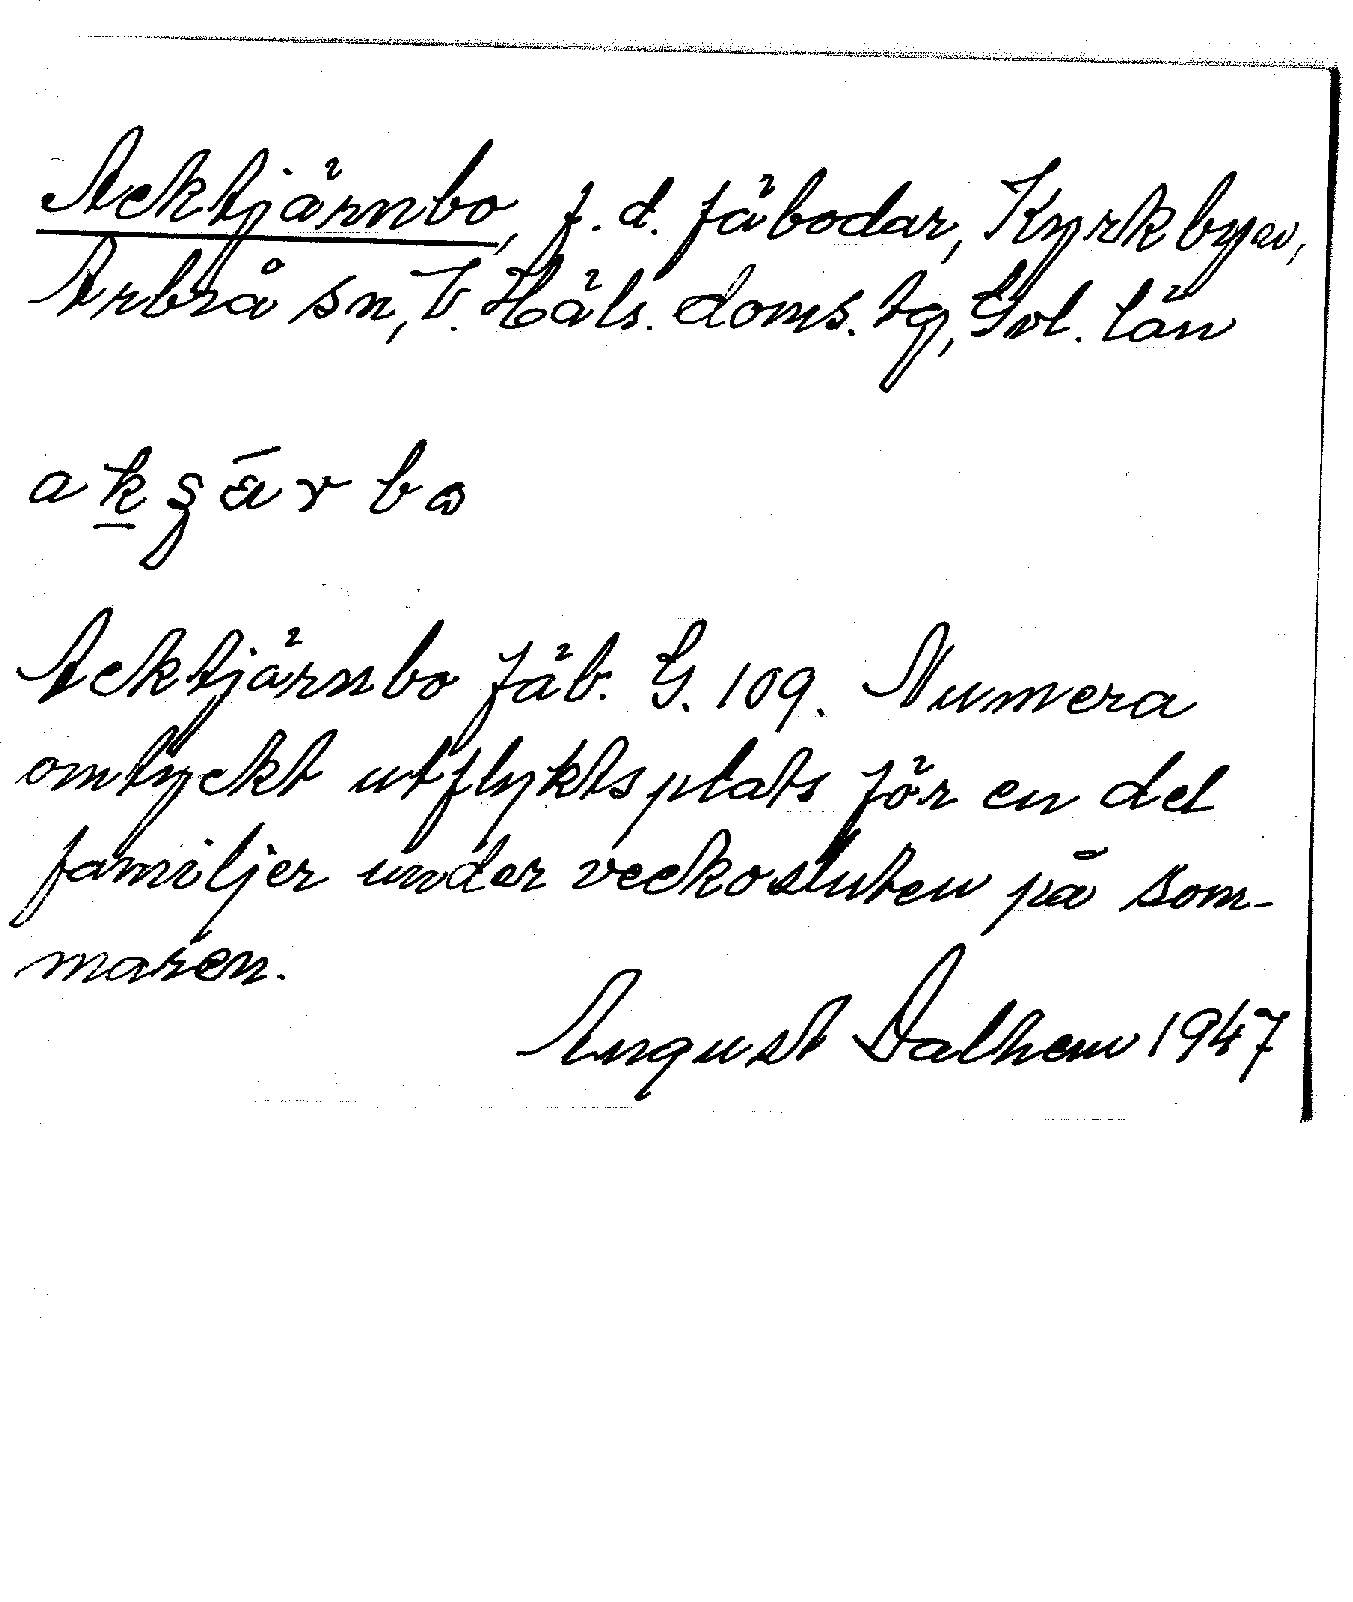 Acktjärnbo, f.d. fäbodar, Kyrkbyn,
Arbrå sn, V. Häls. doms. tg, Gvl. län
Acktjärnbo fäb. G. 109. Numera
omtyckt utflyktsplats för en del
familjer under veckosluten på som-
maren.
August Dalhem 1947